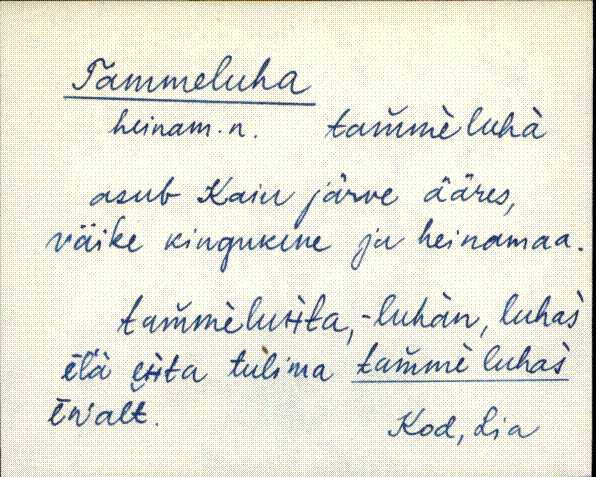 Tammeluha
heinam. n. tam̆mè luhà
asub Kaiu järve ääres,
väike kingukene ja heinamaa.
tam̆mèluɦta, -luhàn, luhas̀
ēĺä eita tulima tam̆mè luhas̀
ēńalt.
Kod, Lia